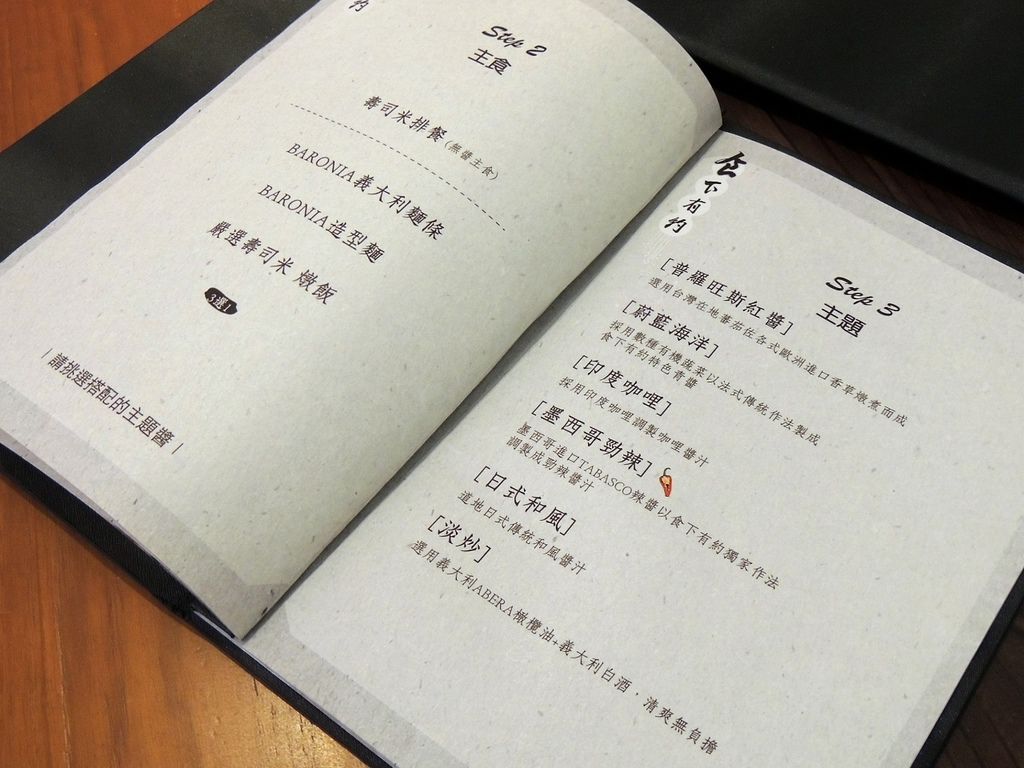 約
Step 2
主食
壽司米排餐(無醬主食)
BARONIA義大利麵條
BARONIA造型麵
嚴選壽司米 燉飯
3選1
|請挑選搭配的主題醬|
食下有約
Step 3
主題
[普羅旺斯紅醬]
選用台灣在地蕃茄佐各式歐洲進口香草燉煮而成
[蔚藍海洋]
採用數種有機蔬菜以法式傳統作法製成
食下有約特色青醬
[印度咖哩]
採用印度咖哩調製咖哩醬汁
[墨西哥勁辣]
墨西哥進口TABASCO辣醬以食下有約獨家作法
調製成勁辣醬汁
[日式和風]
道地日式傳統和風醬汁
[淡炒]
選用義大利ABERA橄欖油+義大利白酒，清爽無負擔